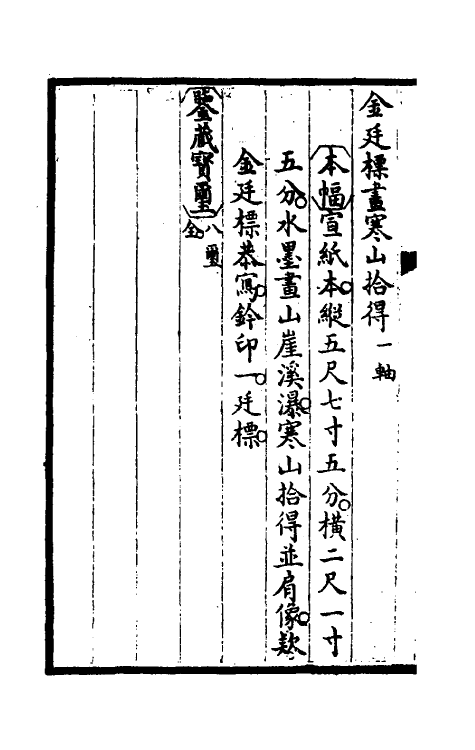 金廷標畫寒山拾得一軸
本幅宣紙本縱五尺七寸五分橫二尺一寸
五分水墨畫山崖溪瀑寒山拾得並肩像欵
金廷標恭寫鈐印一廷標
鑒藏寶璽八璽全